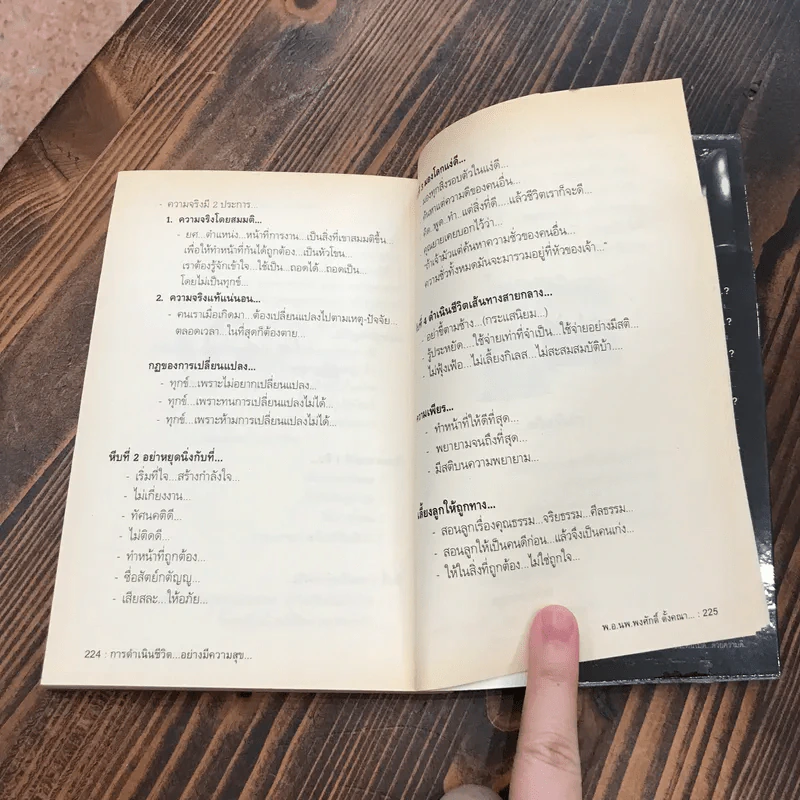 - ความจริงมี 2 ประการ...
1. ความจริงโดยสมมติ...
- ยศ...ตำแหน่ง...หน้าที่การงาน...เป็นสิ่งที่เขาสมมติขึ้น
เพื่อให้ทำหน้าที่กันได้ถูกต้อง...เป็นหัวโขน...
เราต้องรู้จักเข้าใจ...ใช้เป็น...ถอดได้...ถอดเป็น...
โดยไม่เป็นทุกข์...
2. ความจริงแท้แน่นอน...
- คนเราเมื่อเกิดมา...ต้องเปลี่ยนแปลงไปตามเหตุ-ปัจจัย...
ตลอดเวลา...ในที่สุดก็ต้องตาย...
กฎของการเปลี่ยนแปลง...
- ทุกข์...เพราะไม่อยากเปลี่ยนแปลง...
- ทุกข์...เพราะทนการเปลี่ยนแปลงไม่ได้...
- ทุกข์...เพราะห้ามการเปลี่ยนแปลงไม่ได้...
หีบที่ 2 อย่าหยุดนิ่งกับที่...
- เริ่มที่ใจ...สร้างกำลังใจ...
- ไม่เกี่ยงงาน...
- ทัศนคติดี...
- ไม่ติดดี...
- ทำหน้าที่ถูกต้อง...
- ซื่อสัตย์กตัญญู...
- เสียสละ...ให้อภัย...
224 : การดำเนินชีวิต...อย่างมีความสุข...
3 มองโลกแง่ดี...
มองทุกสิ่งรอบตัวในแง่ดี...
ค้นหาแต่ความดีของคนอื่น...
คิด..พูด..ทำ..แต่สิ่งที่ดี....แล้วชีวิตเราก็จะดี...
คุณยายเคยบอกไว้ว่า...
"ถ้าเจ้ามัวแต่ค้นหาความชั่วของคนอื่น...
ความชั่วทั้งหมดมันจะมารวมอยู่ที่หัวของเจ้า..."
ที่ 4 ดำเนินชีวิตเส้นทางสายกลาง...
- อย่าขี้ตามช้าง...(กระแสนิยม...)
- รู้ประหยัด...ใช้จ่ายเท่าที่จำเป็น...ใช้จ่ายอย่างมีสติ...
- ไม่ฟุ้งเฟ้อ...ไม่เลี้ยงกิเลส...ไม่สะสมสมบัติบ้า....
ความเพียร...
- ทำหน้าที่ให้ดีที่สุด...
- พยายามจนถึงที่สุด...
- มีสติบนความพยายาม...
เลี้ยงลูกให้ถูกทาง...
- สอนลูกเรื่องคุณธรรม...จริยธรรม...ศีลธรรม...
- สอนลูกให้เป็นคนดีก่อน...แล้วจึงเป็นคนเก่ง...
- ให้ในสิ่งที่ถูกต้อง...ไม่ใช่ถูกใจ...
พ.อ.นพ.พงศักดิ์ ตั้งคณา... : 225